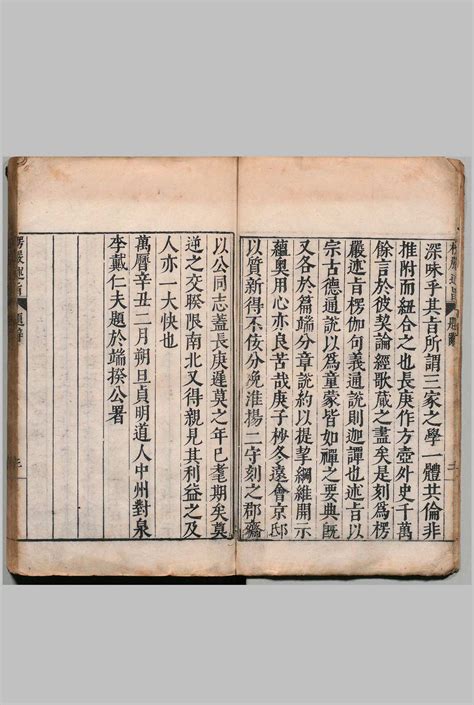 深味乎其旨所謂三家之學一體共倫非
推附而紐合之也長庚作方壺外史千萬
餘言於彼契論經歌蔵之盡矣是刻為楞
嚴述旨楞伽句義通說則迦譚也述旨以
宗古德通說以為童蒙皆如禪之要典既
又各於篇端分章說約以提挈綱維開示
蘊奧用心亦良苦哉庚子杪冬遠會京邸
以質新得不佞分俛淮揚二守刻之郡齋
以公同志蓋長庚遲莫之年已耄期矣莫
逆之交睽限南北又得親見其利益之及
人亦一大快也
萬曆辛丑二月朔旦貞明道人中州對泉
李戴仁夫題於端揆公署
楞嚴述旨 題辭